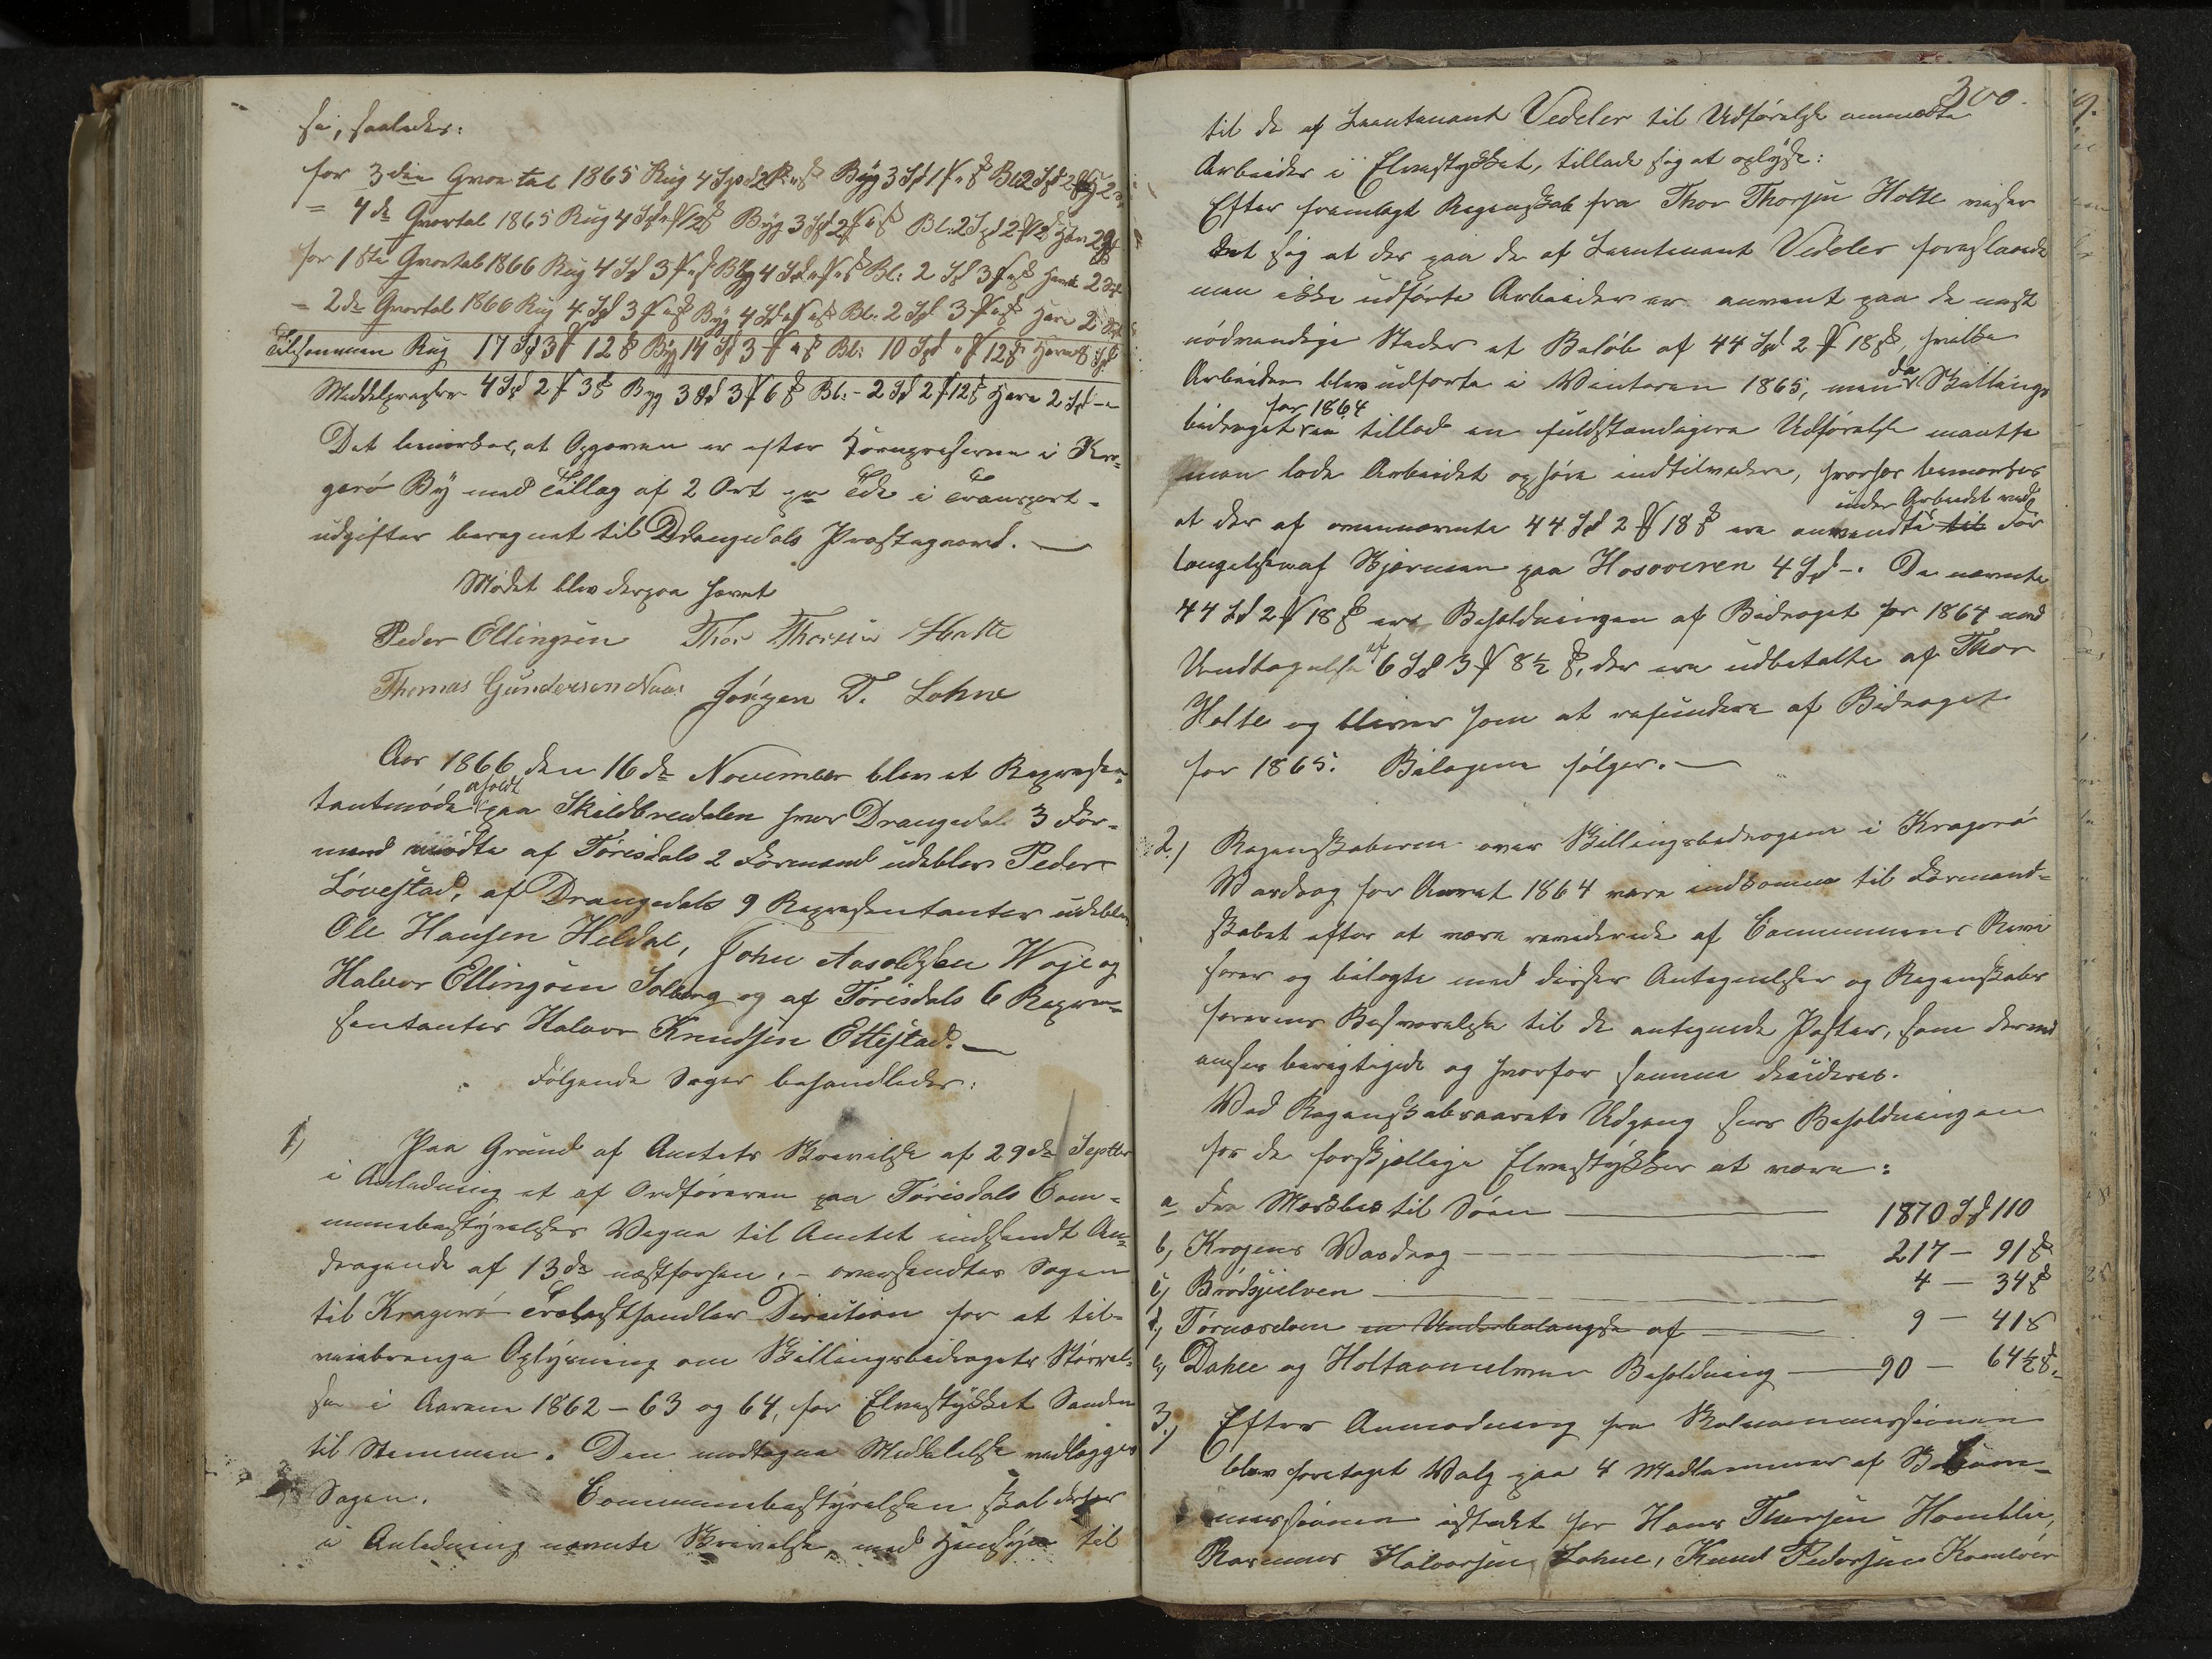 se, saaledes:
for 3die Qvartal 1865 Rug 4 Spd 2 Byg 3 Spd 1 Bl: 2 Spd
= 4de Qvartal 1865 Rug 4 Spd 12 Byg 3 Spd 2 Bl: 2 Spd 2
for 1ste Qvartal 1866 Rug 4 Spd 3 Byg 4 Spd Bl: 2 Spd 3 Havre 2 Spd
= 2de Qvartal 1866 Rug 4 Spd 3 Byg 4 Spd Bl: 2 Spd 3 Havre 2 Spd
Tilsammen Rug 17 Spd 3 12 ß Byg 14 Spd 3 Bl: 10 Spd 12 ß Havre
Middelpriser 4 Spd 2 3 ß Byg 3 Spd 3 6 ß Bl: - 2 Spd 2 12 ß Havre 2 Spd -
Det bemærkes, at Opgaven er efter Kornpriserne i Kra=
gerö By med Tillæg af 2 Ort pr Tde i Transport-
udgifter beregnet til Drangedals Præstegaard. —
Mödet blev derpaa hævet
Peder Ellingsen Thor Thorsen Holte
Thomas Gundersen Naas Jörgen T. Lohne
Aar 1866 den 16de November blev et Repræsen=
tantmöde afholdt paa Skildbredalen hvor Drangedals 3 For-
mænd mödte af Törisdals 2 Formænd udeblev Peder
Lövestad, af Drangedals 9 Repræsentanter udeblev
Ole Hansen Heldal, John Aasoldsen Woje og
Halvor Ellingsen Solberg og af Törisdals 6 Repræ=
sentanter Halvor Knudsen Ettestad. —
Fölgende Sager behandledes:
1, Paa Grund af Amtets Skrivelse af 29de Septbr
i Anledning et af Ordföreren paa Törisdals Com=
munebestyrelses Vegne til Amtet indsendt An=
dragende af 13de næstforhen, - oversendtes Sagen
til Kragerö Trælasthandler Direction for at til-
veiebringe Oplysning om Skillingsbidragets Störrel-
se i Aarene 1862 - 63 og 64, for Elvestykket Sanden
til Stemmen. Den modtagne Meddelelse vedlægges
Sagen. Communebestyrelsen skal derfor
i Anledning nævnte Skrivelse, med Hensyn til
300.
til de af Leutenant Vedeler til Udförelse anmeldte
Arbeider i Elvestykket, tillade sig at oplyse:
Efter fremlagt Regenskab fra Thor Thorsen Holte viser
det sig at der paa de af Leutenant Vedeler foreslaaede
men ikke udförte Arbeider er anvent paa de mest
nödvendige Steder et Belöb af 44 Spd 2 18 ß, hvilke
Arbeider blev udförte i Vinteren 1865, men da Skillings
bidraget for 1864 ei tillod en fuldstændigere Udförelse maatte
man lade Arbeidet ophöre indtilvidere, hvorhos bemærkes
at der af ovennævnte 44 Spd 2 18 ß ere anvendte til under Arbeidet ved For
længelsen af Skjærmen paa Hosooeren 4 Spd -. De nævnte
44 Spd 2 18 ß ere Beholdningen af Bidraget for 1864 med
Undtagelse af 6 Spd 3 8½ ß, der ere udbetalte af Thor
Holte og bliver ham at refundere af Bidraget
for 1865. Bilagene fölger. —
2.) Regenskaberne over Skillingsbidragene i Kragerö
Vasdrag for Aaret 1864 vare indkomne til Formand=
skabet efter at være reviderede af Communens Revi
sorer og bilagte med disses Antegnelser og Regenskabs
förerens Besvarelse til de antegnede Poster, som derved
ansees berigtigede og hvorfor samme decideres.
Ved Regenskabsaarets Udgang sees Beholdningen
for de forskjellige Elvestykker at være:
a Fra Mærkebæk til Söen — 1870 Spd 110
b, Kragens Vasdrag — 217 — 91 ß
c, Brödsjöelven — 4 — 34 ß
d, Tornæselven en Underbalangse af — 9 — 41 ß
e, Dahle og Holtanne elven Beholdning — 90 — 64½ ß.
3.) Efter Anmodning fra Skolecommissionen
blev foretaget Valg paa 4 Medlemmer af Skolecom-
missionen istedet for Hans Thorsen Homblie,
Rasmus Halvorsen Lohne, Knud Pedersen